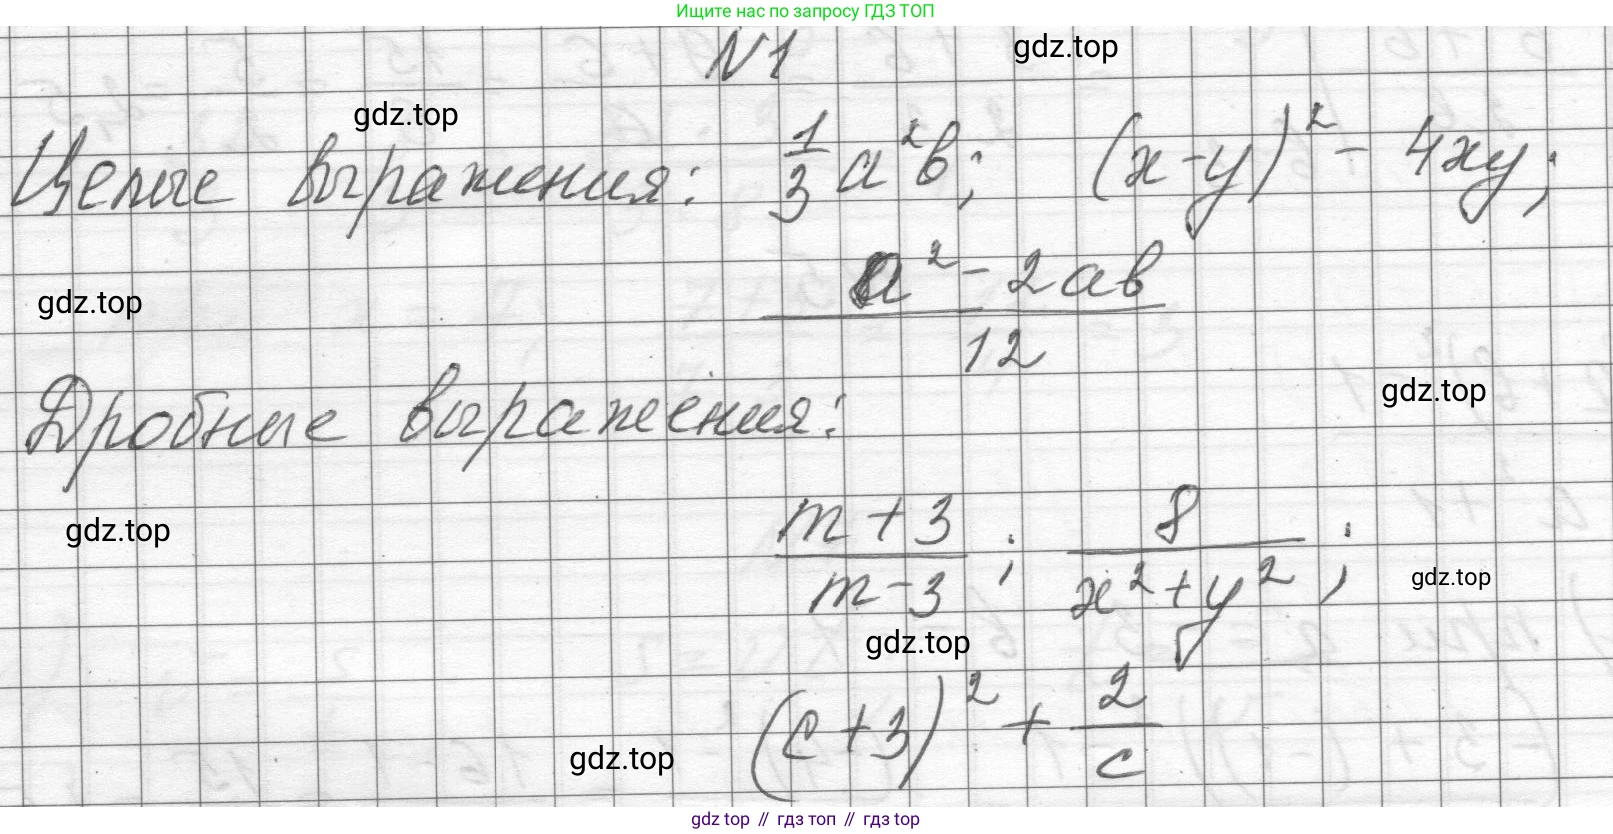 Ищите нас по запросу ГДЗ ТОП
N1
gdz.top
gdz.top
Целые выражения: 1/3 a²b; (x-y)² - 4xy;
gdz.top
a² - 2ab / 12
gdz.top
Дробные выражения:
gdz.top
m+3 / m-3 ; 8 / x²+y² ;
gdz.top
gdz.top
(c+3)² + 2/c
gdz.top
gdz top // гдз топ // gdz top